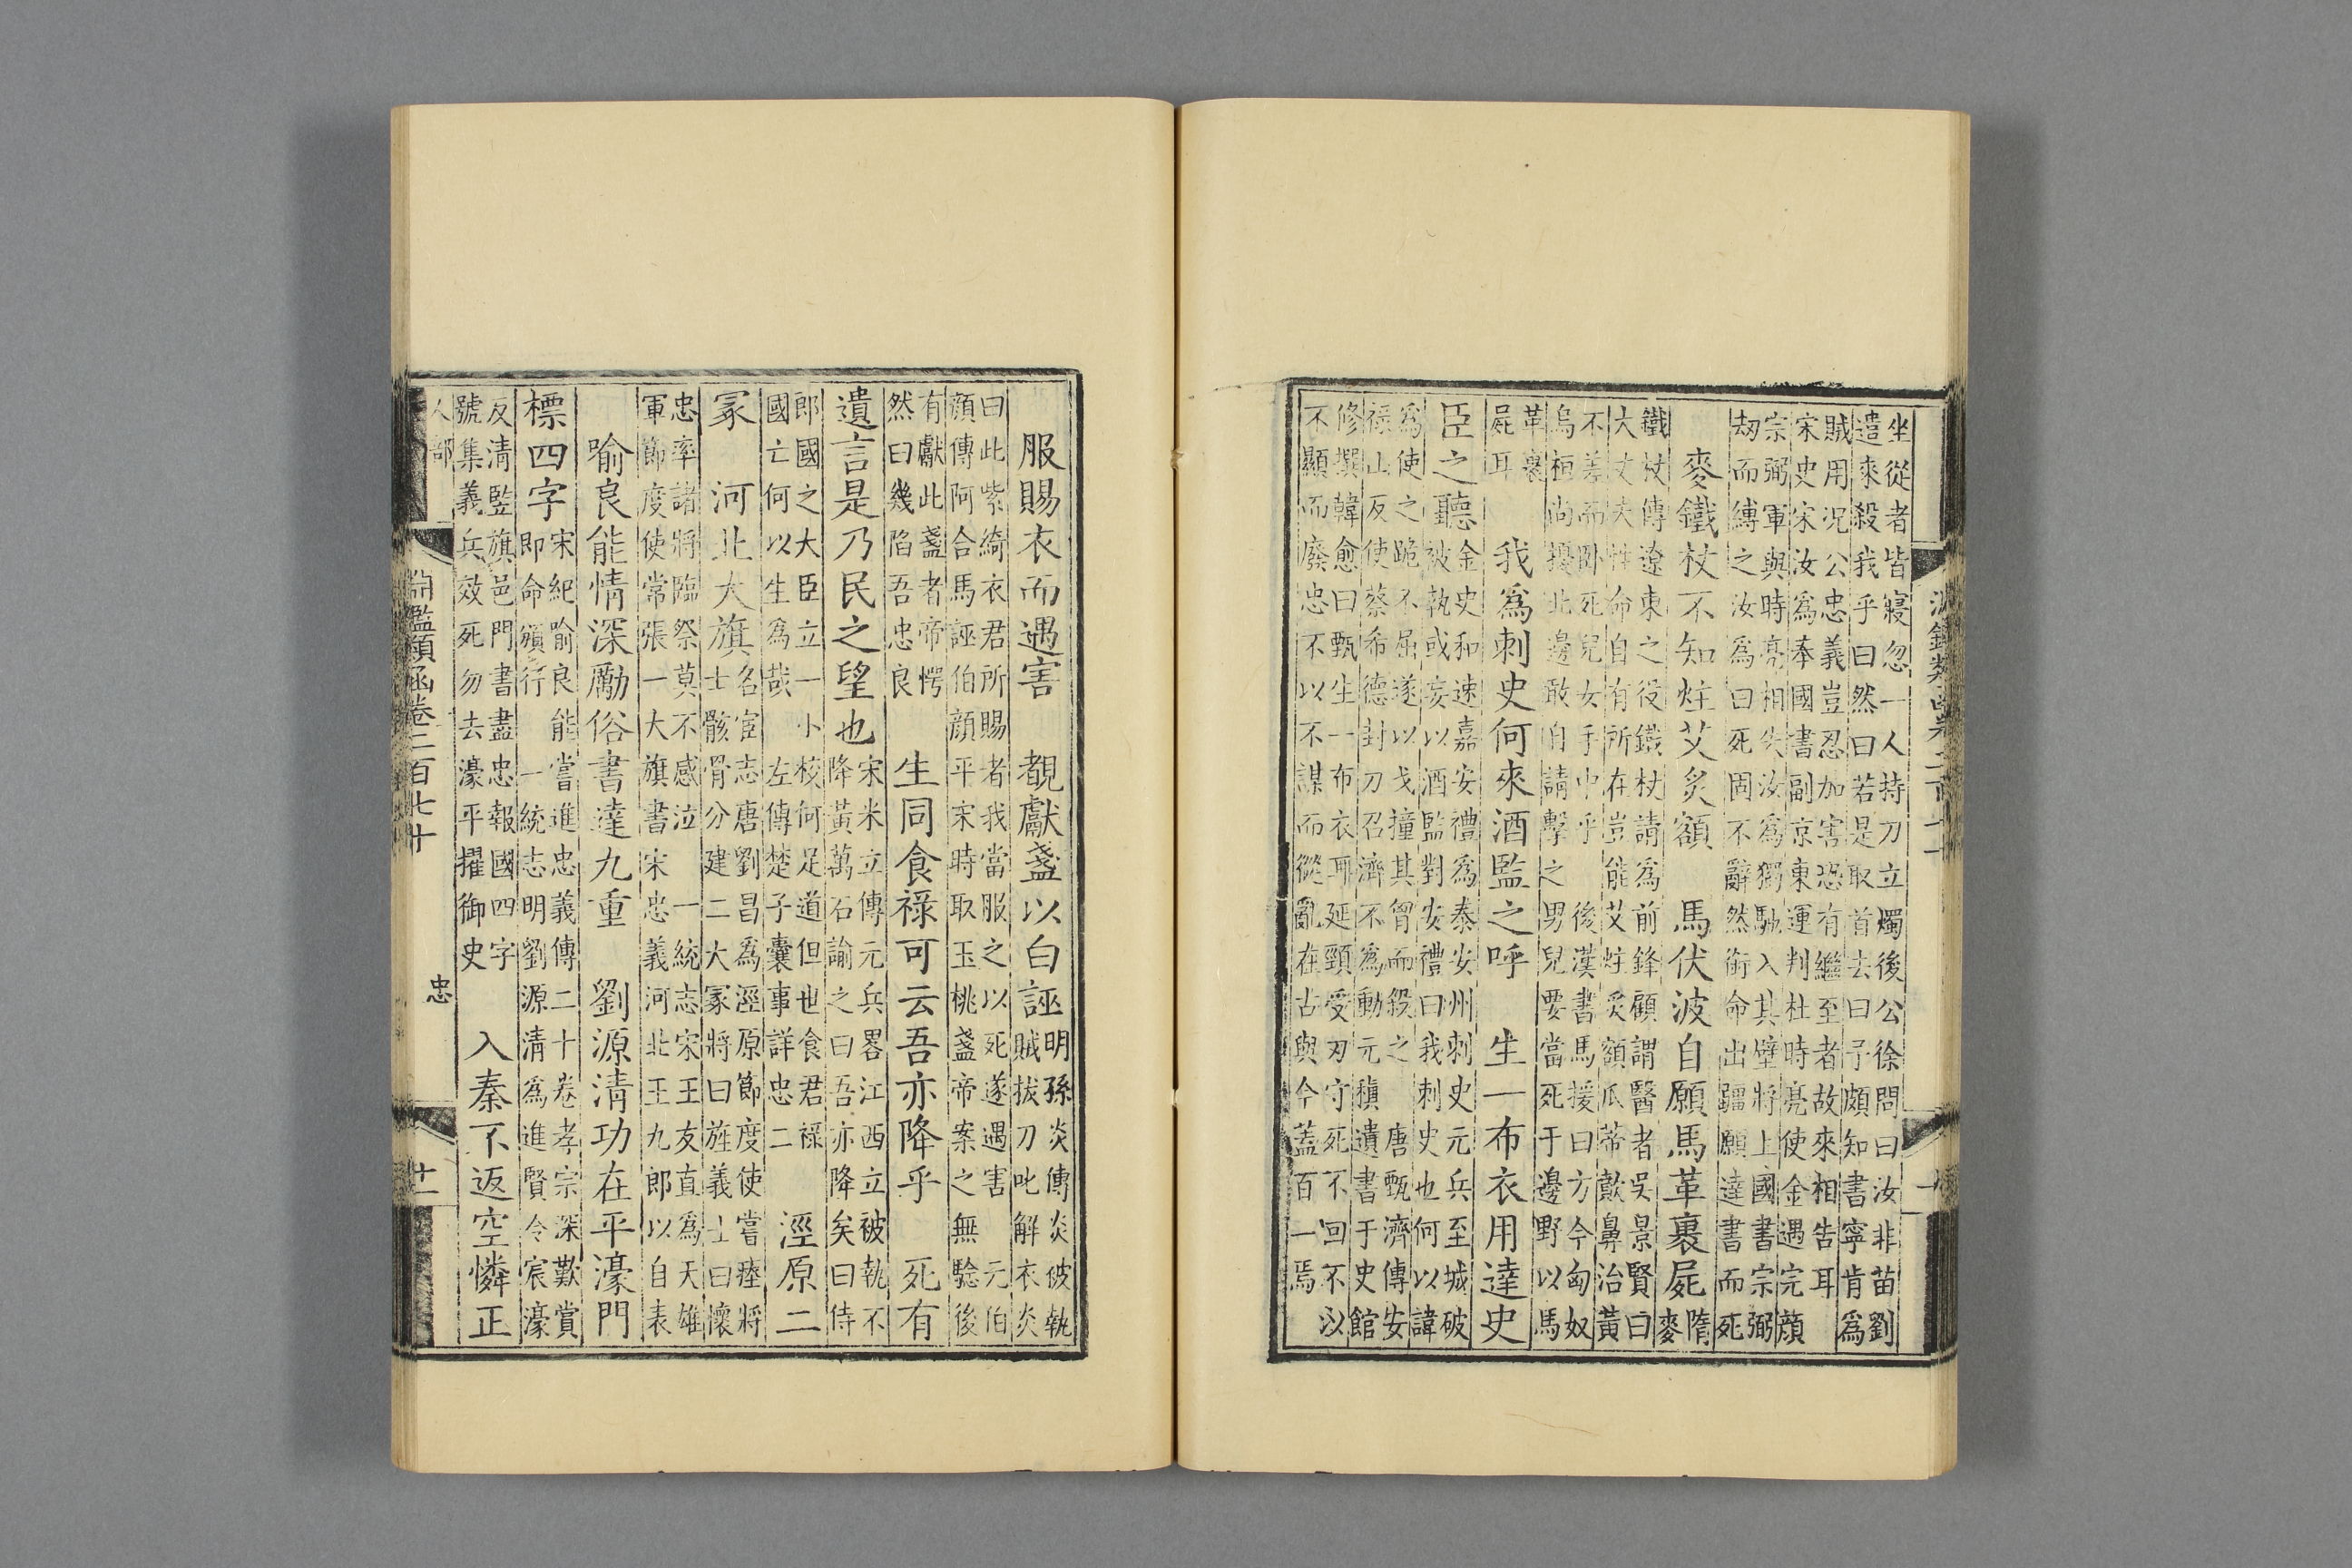 坐從者皆寢忽一人持刀立燭後公徐問曰汝非苗劉
遣來殺我乎曰然曰若是取首去曰予頗知書寧肯爲
賊用况公忠義豈忍加害恐有繼至者故來相告耳
宋史宋汝爲奉國書副京東運判杜時亮使金遇完顔
宗弼軍與時亮相失汝爲獨馳入其壁將上國書宗弼
刼而縛之汝爲曰死固不辭然銜命出疆願達書而死
麥鐵杖不知炷艾炙額 馬伏波自願馬革裹屍
隋麥
鐵杖傳遼東之役鐵杖請爲前鋒顧謂醫者吳景賢曰
大丈夫性命自有所在豈能艾炷炙額瓜蒂歕鼻治黃
不差而卧死兒女手中乎 後漢書馬援曰方今匈奴
烏桓尚擾北邊敢自請擊之男兒要當死于邊野以馬
革裹
屍耳
我爲刺史何來酒監之呼 生一布衣用達史
臣之聽
金史和速嘉安禮爲泰安州刺史元兵至城破
被執或妄以酒監對安禮曰我刺史也何以諱
爲使之跪不屈遂以戈撞其胷而殺之 唐甄濟傳安
祿山反使蔡希德封刀召濟不爲動元稹遺書于史館
修撰韓愈曰甄生一布衣耳延頸受刃守死不回不以
不顯而廢忠不以不謀而從亂在古與今蓋百一焉
服賜衣而遇害 覩獻盞以白誣
明孫炎傳炎被執
賊拔刀叱解衣炎
曰此紫綺衣君所賜者我當服之以死遂遇害 元伯
顔傳阿合馬誣伯顔平宋時取玉桃盞帝案之無騐後
有獻此盞者帝愕
然曰幾陷吾忠良
生同食祿可云吾亦降乎 死有
遺言是乃民之望也
宋米立傳元兵畧江西立被執不
降黃萬石諭之曰吾亦降矣曰侍
郎國之大臣立一小校何足道但也食君祿
國亡何以生爲哉 左傳楚子囊事詳忠二
涇原二
冢 河北大旗
名宦志唐劉昌爲涇原節度使嘗瘞將
士骸骨分建二大冢將曰旌義士曰懷
忠率諸將臨祭莫不感泣 一統志宋王友直爲天雄
軍節度使常張一大旗書宋忠義河北王九郎以自表
喻良能情深勵俗書達九重 劉源清功在平濠門
標四字
宋紀喻良能嘗進忠義傳二十卷孝宗深歎賞
即命頒行 一統志明劉源清爲進賢令宸濠
反清監旗邑門書盡忠報國四字
號集義兵效死勿去濠平擢御史
入秦不返空憐正
人部
淵鑑類函卷二百七十
忠
廿一